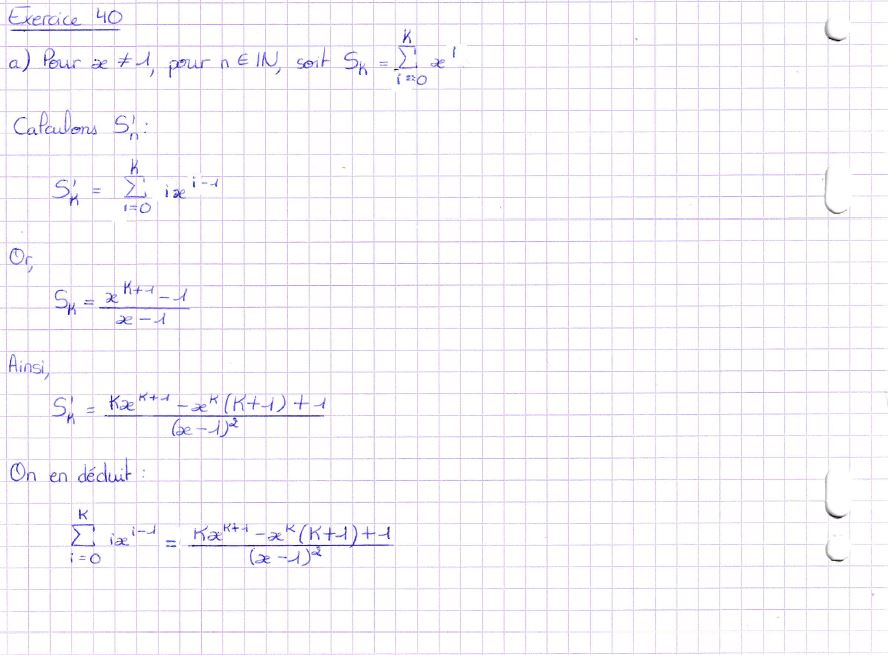 Exercice 40
a) Pour x ≠ 1, pour n ∈ ℕ, soit S_K = ∑_{i=0}^{K} x^i
Calculons S'_n :
S'_K = ∑_{i=0}^{K} i x^{i-1}
Or,
S_K = (x^{K+1} - 1) / (x - 1)
Ainsi,
S'_K = (K x^{K+1} - x^K (K+1) + 1) / (x-1)^2
On en déduit :
∑_{i=0}^{K} i x^{i-1} = (K x^{K+1} - x^K (K+1) + 1) / (x-1)^2